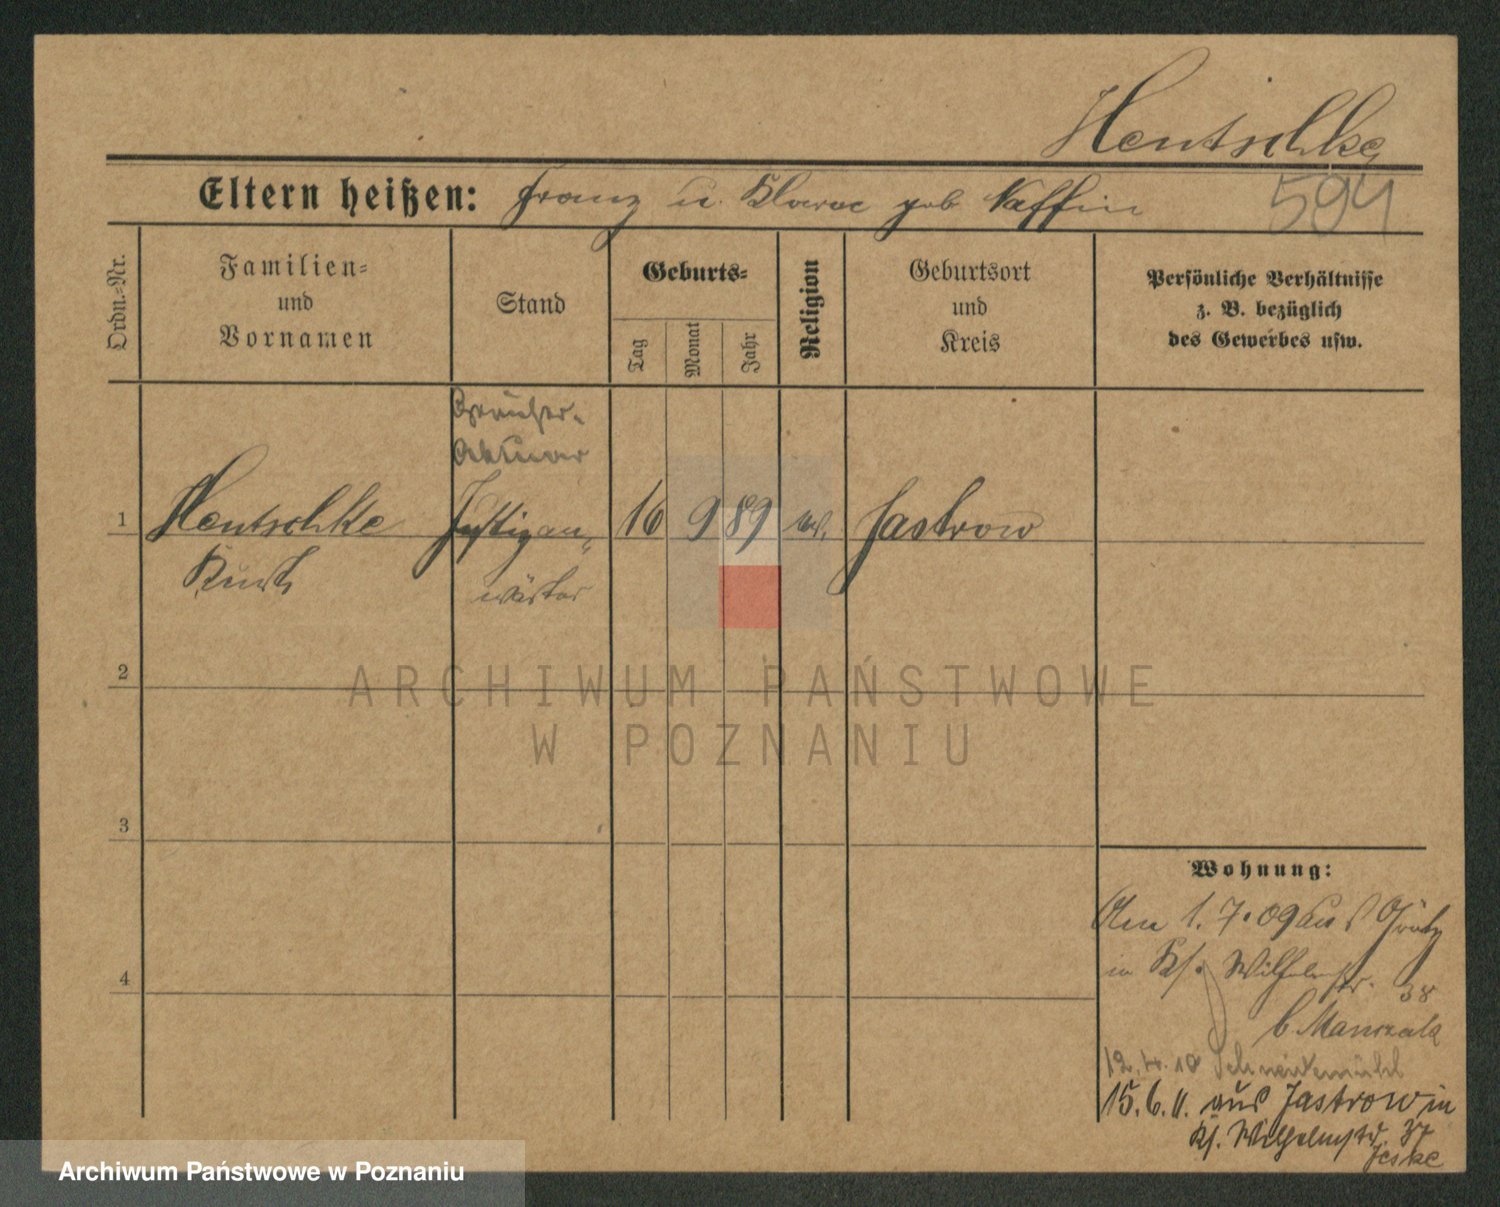 Hentschke
Eltern heißen: Franz u. Klarae geb Naffin
594
Ordn.=Nr.
Familien=
und
Vornamen
Stand
Geburts=
Tag
Monat
Jahr
Religion
Geburtsort
und
Kreis
Persönliche Verhältnisse
z. B. bezüglich
des Gewerbes usw.
Aktuar
1 Hentschke Justizan= 16 9 89 ev. Jastrow
Kurt
wärter
2
3
4
Wohnung:
Am 1.7.09 aus Grätz
in Kf. Wilhelmstr. 38
b Manczak
12.4.10 Schneidemühl
15.6.11. aus Jastrow in
Kf. Wilhelmstr. 37
Jeske
ARCHIWUM PAŃSTWOWE
W POZNANIU
Archiwum Państwowe w Poznaniu